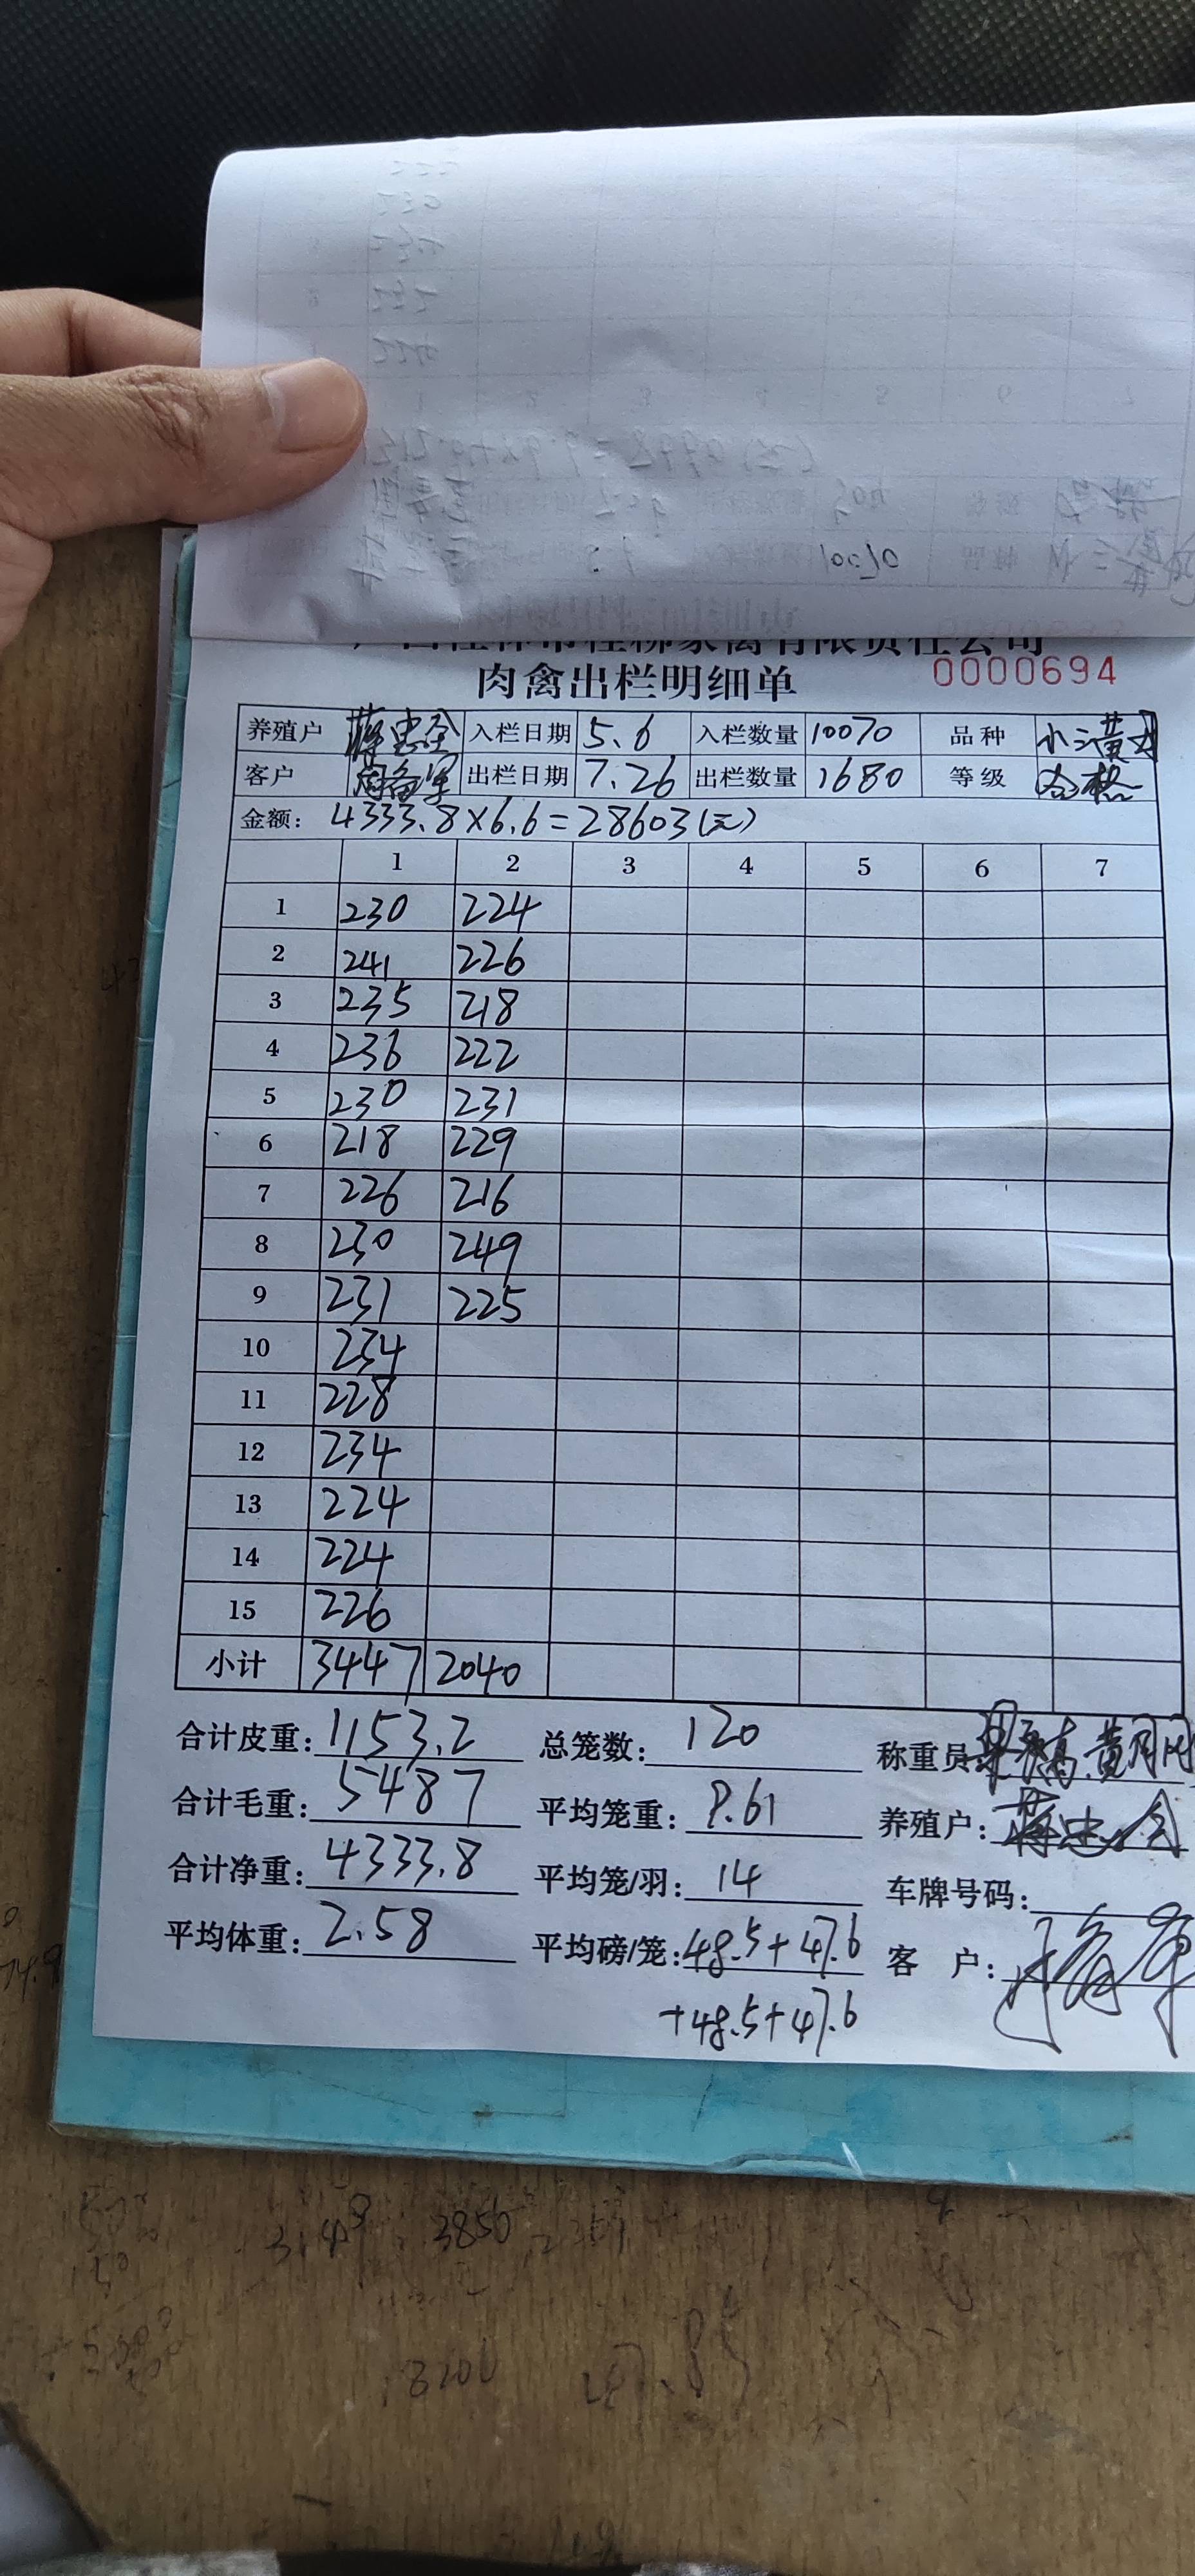 肉禽出栏明细单
0000694
养殖户 蒋忠全 入栏日期 5.6 入栏数量 10070 品种 小三黄
客户 出栏日期 7.26 出栏数量 1680 等级 合格
金额: 4333.8×6.6=28603(元)
1 2 3 4 5 6 7
1 230 224
2 241 226
3 235 218
4 236 222
5 230 231
6 218 229
7 226 216
8 230 249
9 231 225
10 234
11 228
12 234
13 224
14 224
15 226
小计 3447 2040
合计皮重: 1153.2 总笼数: 120 称重员
合计毛重: 5487 平均笼重: 9.61 养殖户: 蒋忠全
合计净重: 4333.8 平均笼/羽: 14 车牌号码:
平均体重: 2.58 平均磅/笼: 48.5+47.6 客 户:
+48.5+47.6
3850